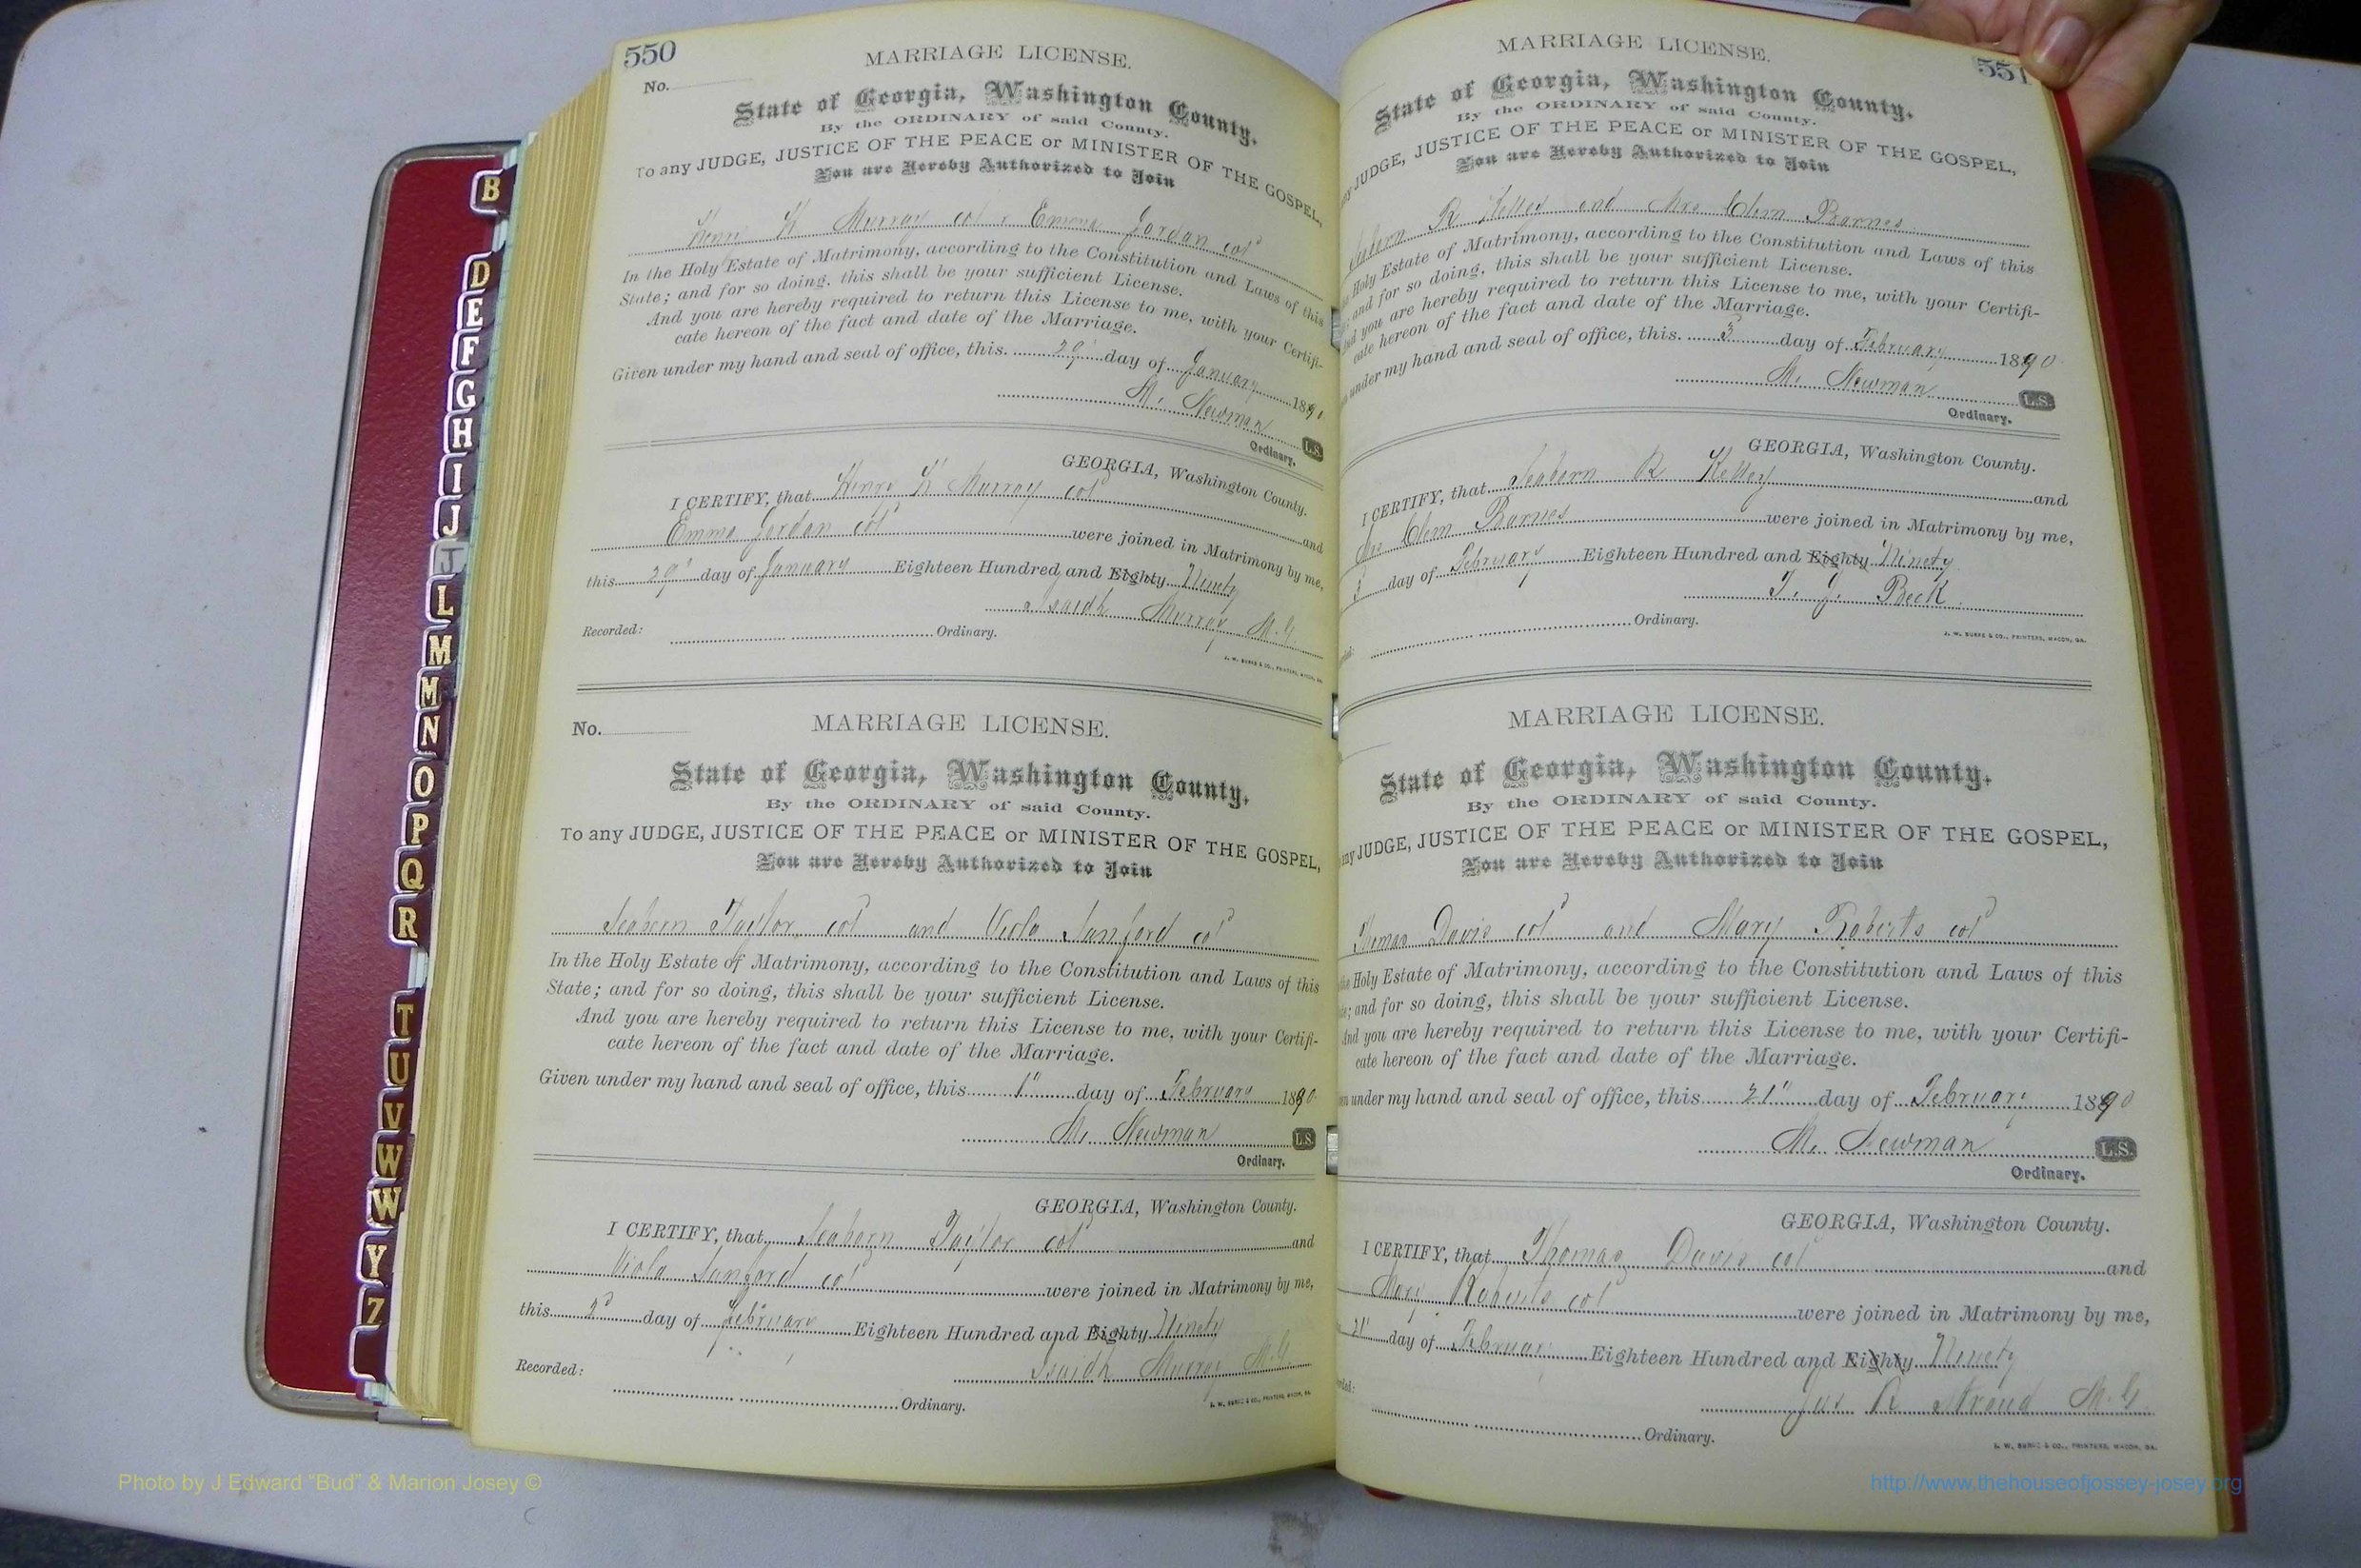 B
D
E
F
G
H
I
J
J
L
M
M
N
O
P
Q
R
T
U
V
W
W
Y
Z
550
No.
MARRIAGE LICENSE.
State of Georgia, Washington County.
By the ORDINARY of said County.
To any JUDGE, JUSTICE OF THE PEACE or MINISTER OF THE GOSPEL,
You are Hereby Authorized to Join
Henry H Murray col & Emma Jordan col
In the Holy Estate of Matrimony, according to the Constitution and Laws of this
State; and for so doing, this shall be your sufficient License.
And you are hereby required to return this License to me, with your Certifi-
cate hereon of the fact and date of the Marriage.
Given under my hand and seal of office, this 29" day of January 1890
M. Newman L.S.
Ordinary.
GEORGIA, Washington County.
I CERTIFY, that Henry H Murray col and
Emma Jordan col were joined in Matrimony by me,
this 29" day of January Eighteen Hundred and Eighty Ninety
Isaiah Murray M.G.
Recorded: Ordinary.
J. W. BURKE & CO., PRINTERS, MACON, GA.
No.
MARRIAGE LICENSE.
State of Georgia, Washington County.
By the ORDINARY of said County.
To any JUDGE, JUSTICE OF THE PEACE or MINISTER OF THE GOSPEL,
You are Hereby Authorized to Join
Seaborn Taylor col and Viola Sanford col
In the Holy Estate of Matrimony, according to the Constitution and Laws of this
State; and for so doing, this shall be your sufficient License.
And you are hereby required to return this License to me, with your Certifi-
cate hereon of the fact and date of the Marriage.
Given under my hand and seal of office, this 1" day of February 1890
M. Newman L.S.
Ordinary.
GEORGIA, Washington County.
I CERTIFY, that Seaborn Taylor col and
Viola Sanford col were joined in Matrimony by me,
this 2d day of February Eighteen Hundred and Eighty Ninety
Isaiah Murray M.G.
Recorded: Ordinary.
J. W. BURKE & CO., PRINTERS, MACON, GA.
551
MARRIAGE LICENSE.
State of Georgia, Washington County.
By the ORDINARY of said County.
any JUDGE, JUSTICE OF THE PEACE or MINISTER OF THE GOSPEL,
You are Hereby Authorized to Join
R Kelley and Mrs Clem Barnes
Holy Estate of Matrimony, according to the Constitution and Laws of this
and for so doing, this shall be your sufficient License.
And you are hereby required to return this License to me, with your Certifi-
cate hereon of the fact and date of the Marriage.
under my hand and seal of office, this 3 day of February 1890
M. Newman L.S.
Ordinary.
GEORGIA, Washington County.
I CERTIFY, that Seaborn R Kelley and
Mrs Clem Barnes were joined in Matrimony by me,
day of February Eighteen Hundred and Eighty Ninety
T. J. Beck
Ordinary.
J. W. BURKE & CO., PRINTERS, MACON, GA.
MARRIAGE LICENSE.
State of Georgia, Washington County.
By the ORDINARY of said County.
any JUDGE, JUSTICE OF THE PEACE or MINISTER OF THE GOSPEL,
You are Hereby Authorized to Join
Thomas Davis col and Mary Roberts col
the Holy Estate of Matrimony, according to the Constitution and Laws of this
and for so doing, this shall be your sufficient License.
And you are hereby required to return this License to me, with your Certifi-
cate hereon of the fact and date of the Marriage.
under my hand and seal of office, this 21" day of February 1890
M. Newman L.S.
Ordinary.
GEORGIA, Washington County.
I CERTIFY, that Thomas Davis col and
Mary Roberts col were joined in Matrimony by me,
21" day of February Eighteen Hundred and Eighty Ninety
Jas R Stroud M.G.
Ordinary.
J. W. BURKE & CO., PRINTERS, MACON, GA.
Photo by J Edward "Bud" & Marion Josey ©
http://www.thehouseofjossey-josey.org